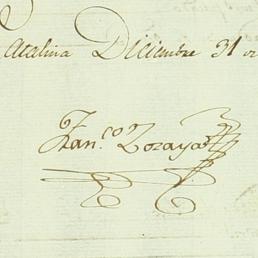 Atalina Diciembre 31
Fran.co Lozaya